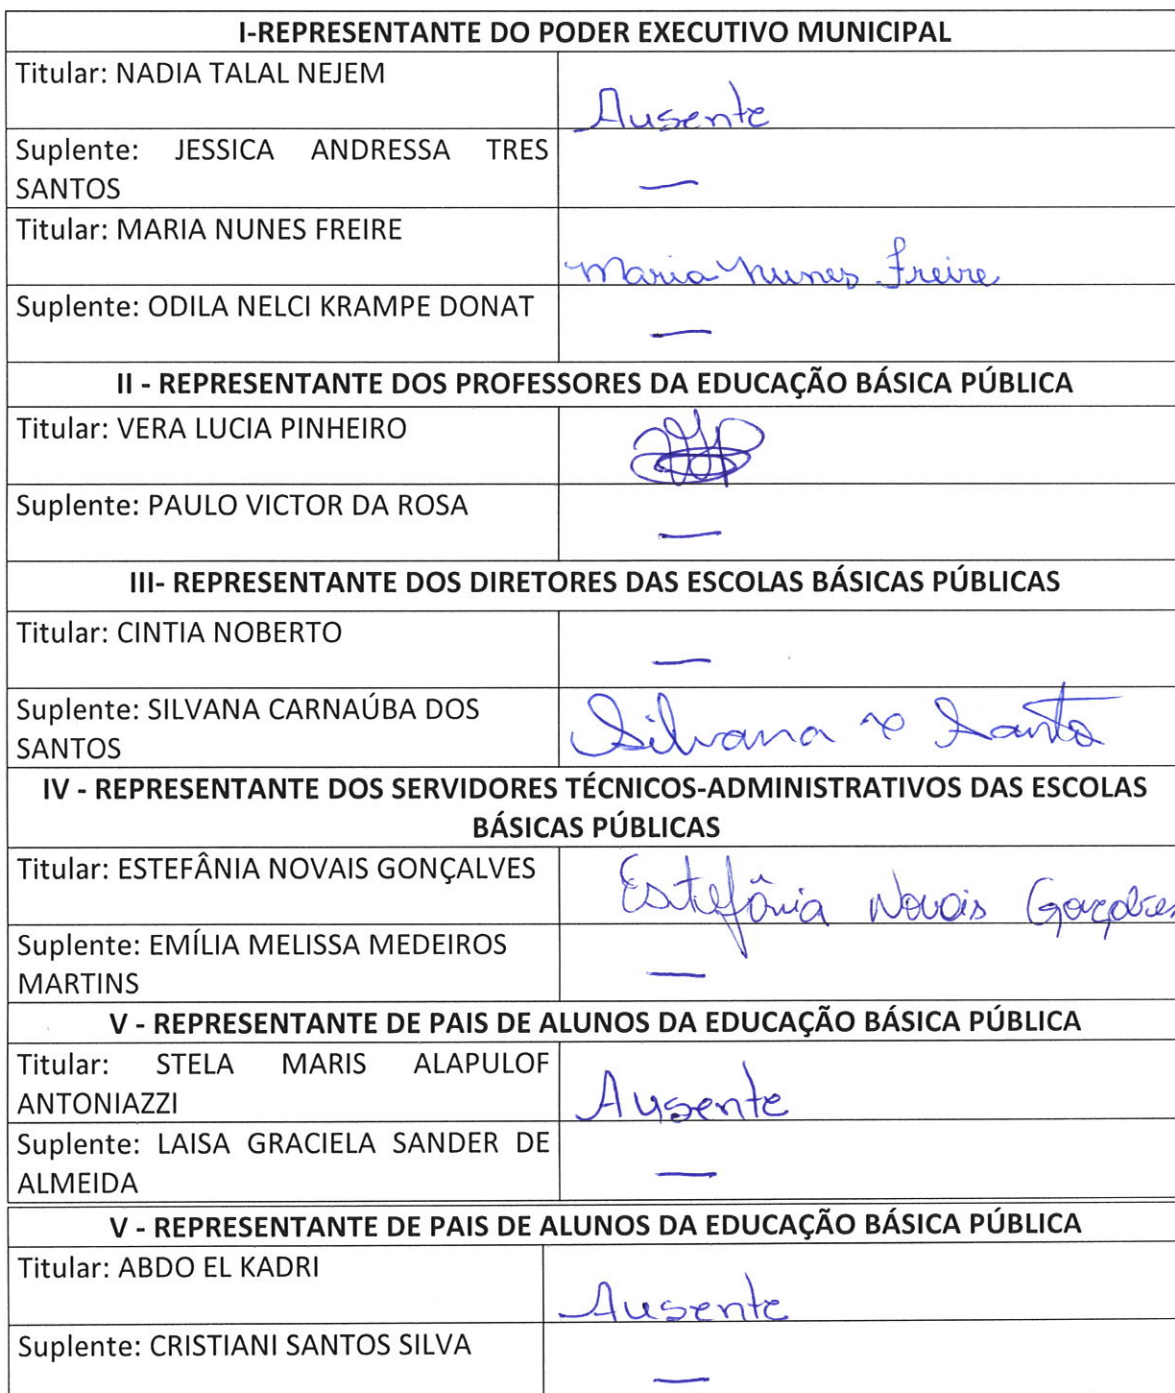 I-REPRESENTANTE DO PODER EXECUTIVO MUNICIPAL
Titular: NADIA TALAL NEJEM
Ausente
Suplente: JESSICA ANDRESSA TRES
SANTOS
—
Titular: MARIA NUNES FREIRE
Maria Nunes Freire
Suplente: ODILA NELCI KRAMPE DONAT
—
II - REPRESENTANTE DOS PROFESSORES DA EDUCAÇÃO BÁSICA PÚBLICA
Titular: VERA LUCIA PINHEIRO
Suplente: PAULO VICTOR DA ROSA
—
III- REPRESENTANTE DOS DIRETORES DAS ESCOLAS BÁSICAS PÚBLICAS
Titular: CINTIA NOBERTO
—
Suplente: SILVANA CARNAÚBA DOS
SANTOS
Silvana Santos
IV - REPRESENTANTE DOS SERVIDORES TÉCNICOS-ADMINISTRATIVOS DAS ESCOLAS
BÁSICAS PÚBLICAS
Titular: ESTEFÂNIA NOVAIS GONÇALVES
Estefânia Novais Gonçalves
Suplente: EMÍLIA MELISSA MEDEIROS
MARTINS
—
V - REPRESENTANTE DE PAIS DE ALUNOS DA EDUCAÇÃO BÁSICA PÚBLICA
Titular: STELA MARIS ALAPULOF
ANTONIAZZI
Ausente
Suplente: LAISA GRACIELA SANDER DE
ALMEIDA
—
V - REPRESENTANTE DE PAIS DE ALUNOS DA EDUCAÇÃO BÁSICA PÚBLICA
Titular: ABDO EL KADRI
Ausente
Suplente: CRISTIANI SANTOS SILVA
—